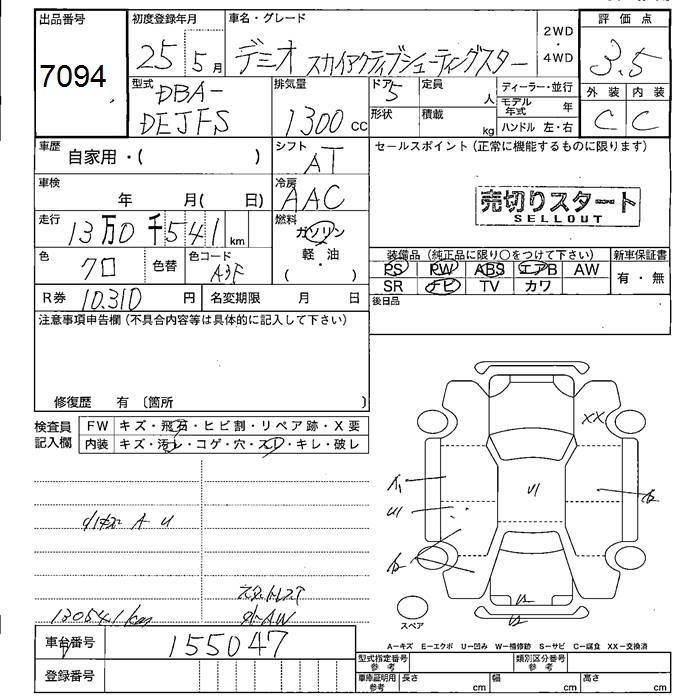 出品番号
7094
初度登録年月
25年5月
車名・グレード
デミオ スカイアクティブシューティングスター
2WD
・
4WD
評価点
3.5
外装 内装
C C
型式
DBA-
DEJFS
排気量
1300cc
ドア 5
形状
定員 人
積載 kg
ディーラー・並行
モデル年式 年
ハンドル 左・右
車歴 自家用・( )
シフト
AT
セールスポイント(正常に機能するものに限ります)
売切りスタート
SELLOUT
車検 年 月( 日)
冷房
AAC
走行 13万0千541km
燃料
ガソリン
・
軽・油
( )
色 クロ
色替
色コード
A3F
装備品(純正品に限り〇をつけて下さい)
新車保証書
PS PW ABS エアB AW
有・無
SR ナビ TV カワ
R券 10,310円
名変期限 月 日
後日品
注意事項申告欄(不具合内容等は具体的に記入して下さい)
修復歴 有〔箇所 〕
検査員
記入欄
FW キズ・飛石・ヒビ割・リペア跡・X要
内装 キズ・汚レ・コゲ・穴・スレ・キレ・破レ
XX
A1
U1
U1
A U
130541km
スタットレス
外AW
スペア
A−キズ E−エクボ U−凹み W−補修跡 S−サビ C−腐食 XX−交換済
車台番号 155047
登録番号
型式指定番号
参考
類別区分番号
参考
車庫証明用
参考
長さ cm
幅 cm
高さ cm